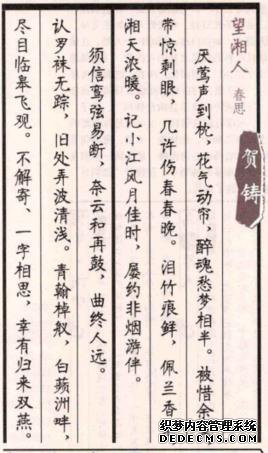 望湘人 春思
贺铸
厌莺声到枕，花气动帘，醉魂愁梦相半。被惜余
带惊剩眼，几许伤春春晚。泪竹痕鲜，佩兰香
湘天浓暖。记小江风月佳时，屡约非烟游伴。
须信鸾弦易断，奈云和再鼓，曲终人远。
认罗袜无踪，旧处弄波清浅。青翰棹舣，白蘋洲畔，
尽目临皋飞观。不解寄、一字相思，幸有归来双燕。
织梦内容管理系统
DEDECMS.COM